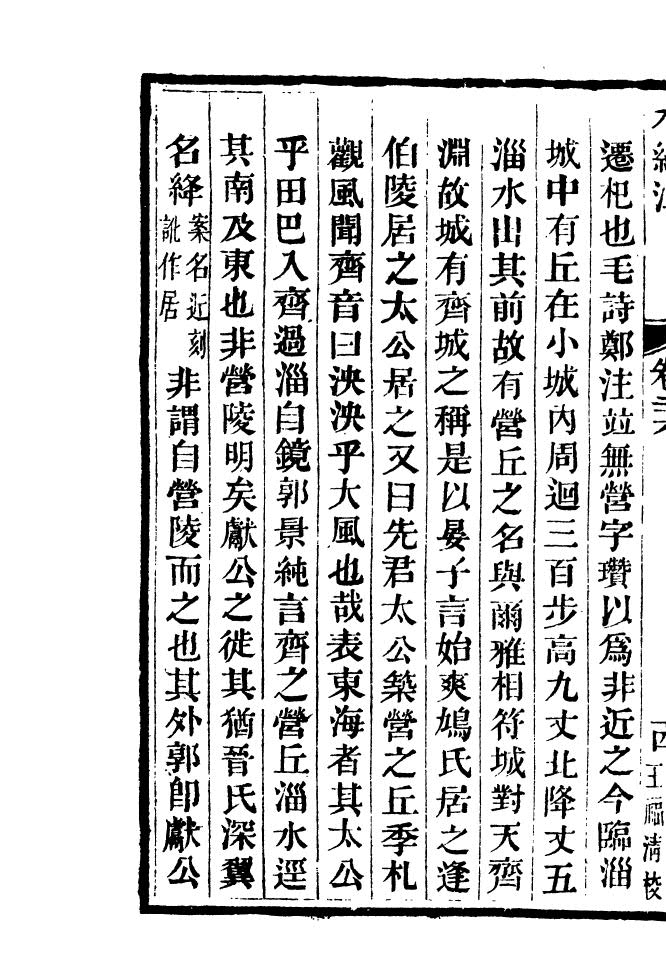 遷杞也毛詩鄭注竝無營字瓚以爲非近之今臨淄
城中有丘在小城內周迴三百步高九丈北降丈五
淄水出其前故有營丘之名與爾雅相符城對天齊
淵故城有齊城之稱是以晏子言始爽鳩氏居之逢
伯陵居之太公居之又曰先君太公築營之丘季札
觀風聞齊音曰泱泱乎大風也哉表東海者其太公
乎田巴入齊過淄自鏡郭景純言齊之營丘淄水逕
其南及東也非營陵明矣獻公之徙其猶晉氏深翼
名絳案名近刻訛作居非謂自營陵而之也其外郭卽獻公